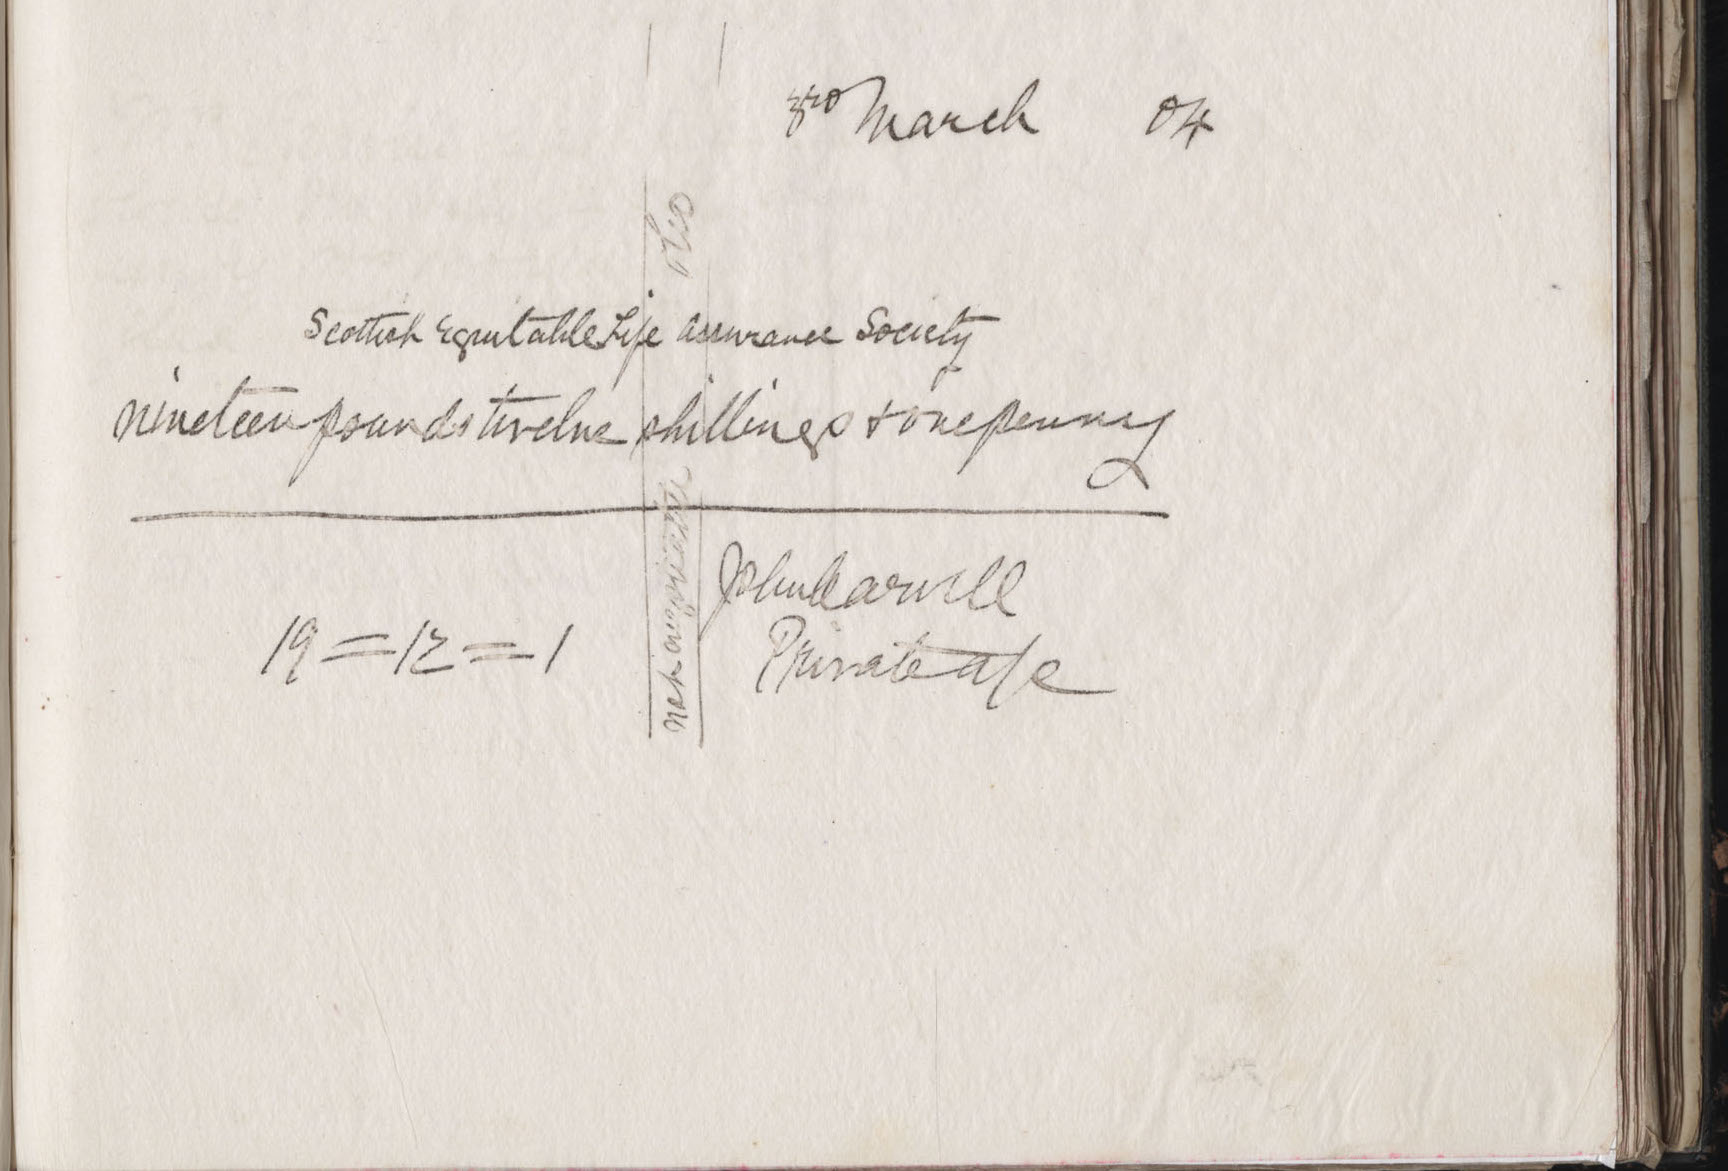 3rd March 04
Scottish Equitable Life Assurance Society
nineteen pounds twelve shillings + one penny
19=12=1
John
Private a/c
not negotiable
& Co